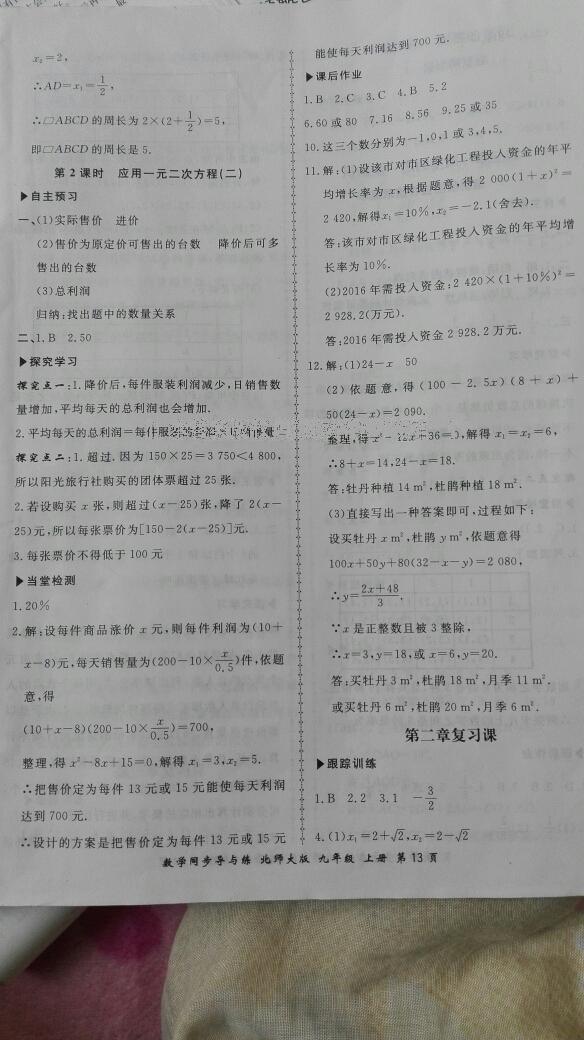 x₂=2,
∴AD=x₁=1/2,
∴□ABCD的周长为2×(2+1/2)=5,
即□ABCD的周长是5.
第2课时 应用一元二次方程(二)
▶自主预习
一、(1)实际售价 进价
(2)售价为原定价可售出的台数 降价后可多
售出的台数
(3)总利润
归纳:找出题中的数量关系
二、1.B 2.50
▶探究学习
探究点一:1.降价后,每件服装利润减少,日销售数
量增加,平均每天的总利润也会增加.
2.平均每天的总利润=每件服装
探究点二:1.超过.因为150×25=3 750<4 800,
所以阳光旅行社购买的团体票超过25张.
2.若设购买x张,则超过(x-25)张,降了2(x-
25)元,所以每张票价为[150-2(x-25)]元.
3.每张票价不得低于100元
▶当堂检测
1.20%
2.解:设每件商品涨价x元,则每件利润为(10+
x-8)元,每天销售量为(200-10×x/0.5)件,依题
意,得
(10+x-8)(200-10×x/0.5)=700,
整理,得x²-8x+15=0,解得x₁=3,x₂=5.
∴把售价定为每件13元或15元能使每天利润
达到700元.
∴设计的方案是把售价定为每件13元或15元
能使每天利润达到700元.
▶课后作业
1.B 2.C 3.C 4.B 5.2
6.60或80 7.16 8.56 9.25或35
10.这三个数分别为-1,0,1或3,4,5.
11.解:(1)设该市对市区绿化工程投入资金的年平
均增长率为x,根据题意,得2 000(1+x)²=
2 420,解得x₁=10%,x₂=-2.1(舍去).
答:该市对市区绿化工程投入资金的年平均增
长率为10%.
(2)2016年需投入资金:2 420×(1+10%)²=
2 928.2(万元).
答:2016年需投入资金2 928.2万元.
12.解:(1)24-x 50
(2)依题意,得(100-2.5x)(8+x)+
50(24-x)=2 090.
整理,得x²-12x+36=0,解得x₁=x₂=6,
∴8+x=14,24-x=18.
答:牡丹种植14 m²,杜鹃种植18 m².
(3)直接写出一种答案即可,过程如下:
设买牡丹x m²,杜鹃y m²,依题意得
100x+50y+80(32-x-y)=2 080,
∴y=2x+48/3.
∵x是正整数且被3整除,
∴x=3,y=18,或x=6,y=20.
答:买牡丹3 m²,杜鹃18 m²,月季11 m².
或买牡丹6 m²,杜鹃20 m²,月季6 m².
第二章复习课
▶跟踪训练
1.B 2.2 3.1 -3/2
4.(1)x₁=2+√2,x₂=2-√2
数学同步导与练 北师大版 九年级 上册 第13页